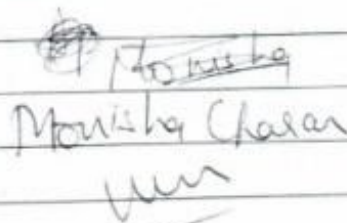 Monisha
Monisha Charan